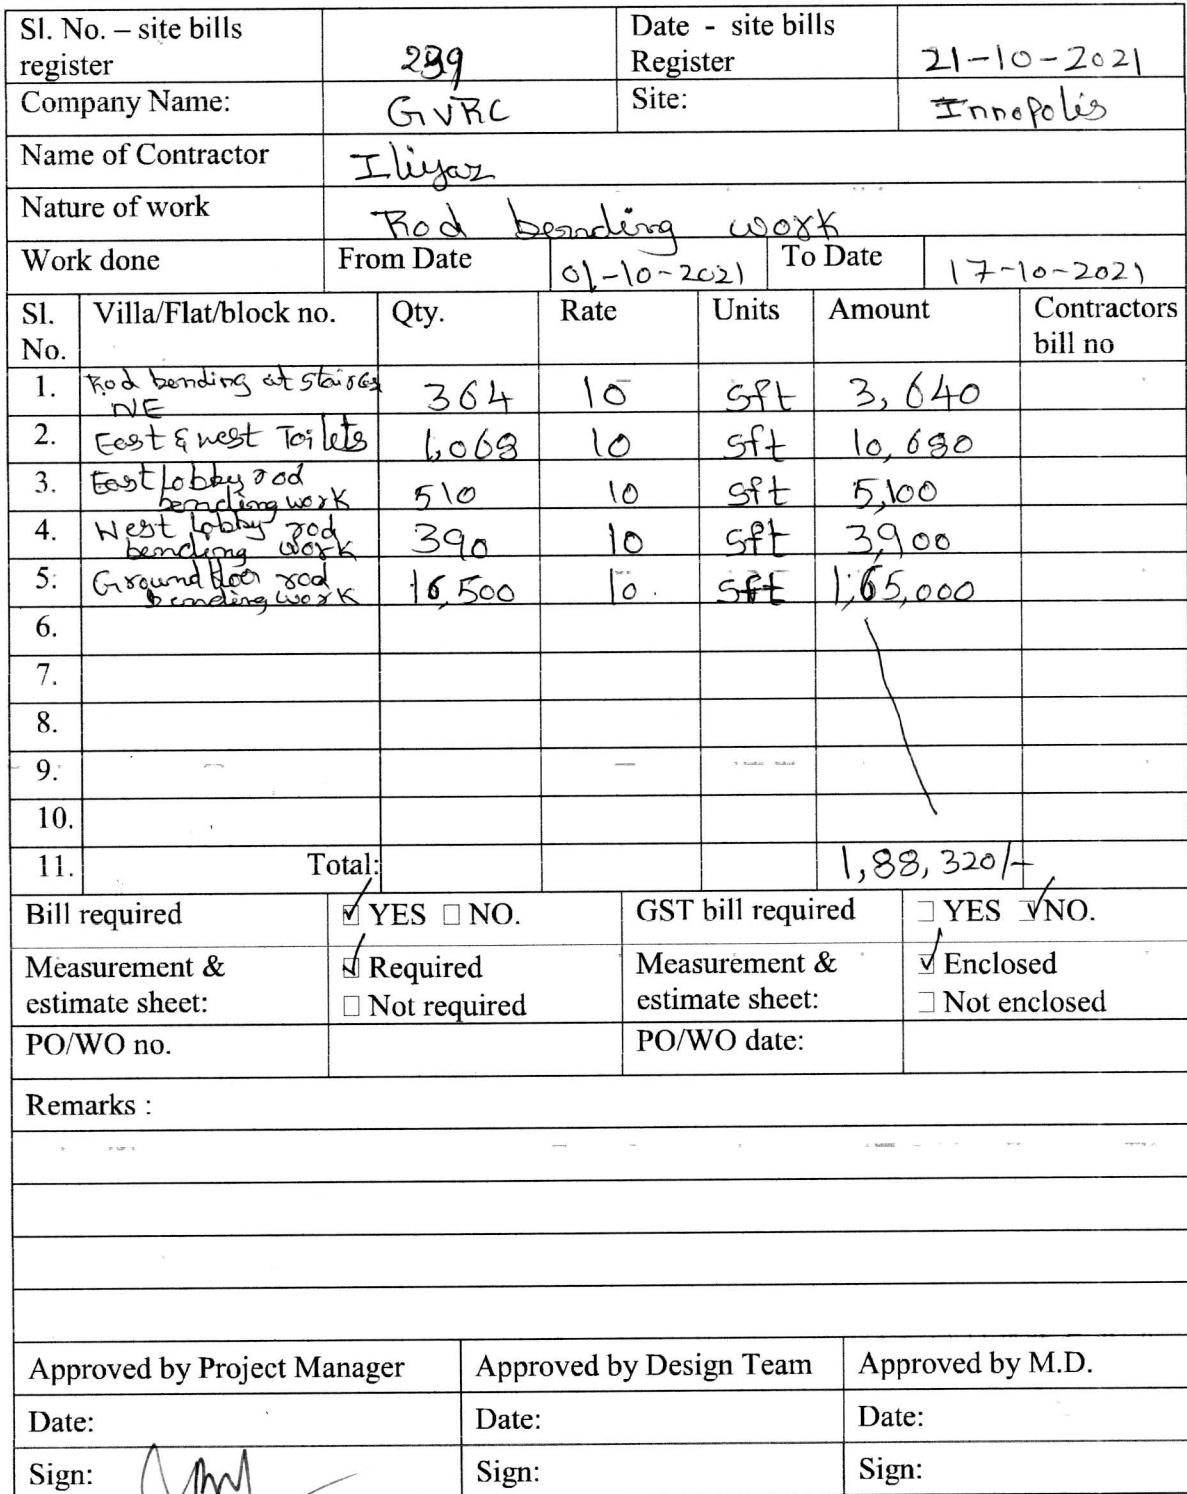 Sl. No. – site bills register 239 Date - site bills Register 21-10-2021
Company Name: GVRC Site: Innopolis
Name of Contractor Iliyaz
Nature of work Rod bending work
Work done From Date 01-10-2021 To Date 17-10-2021
Sl. No. Villa/Flat/block no. Qty. Rate Units Amount Contractors bill no
1. Rod bending at staircase NE 364 10 sft 3,640
2. East & west Toilets 1,068 10 sft 10,680
3. East lobby rod bending work 510 10 sft 5,100
4. West lobby rod bending work 390 10 sft 3,900
5. Ground floor rod bending work 16,500 10 sft 1,65,000
6.
7.
8.
9.
10.
11. Total: 1,88,320/-
Bill required ☑ YES ☐ NO. GST bill required ☐ YES ☑ NO.
Measurement & estimate sheet: ☑ Required ☐ Not required Measurement & estimate sheet: ☑ Enclosed ☐ Not enclosed
PO/WO no. PO/WO date:
Remarks :
Approved by Project Manager Approved by Design Team Approved by M.D.
Date: Date: Date:
Sign: Sign: Sign: